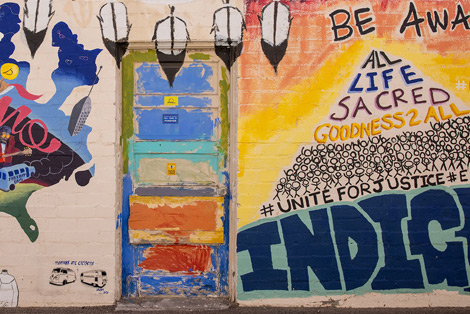 BE AWA
ALL
LIFE
SACRED
GOODNESS 2 ALL
#UNITE FOR JUSTICE #E
INDIG